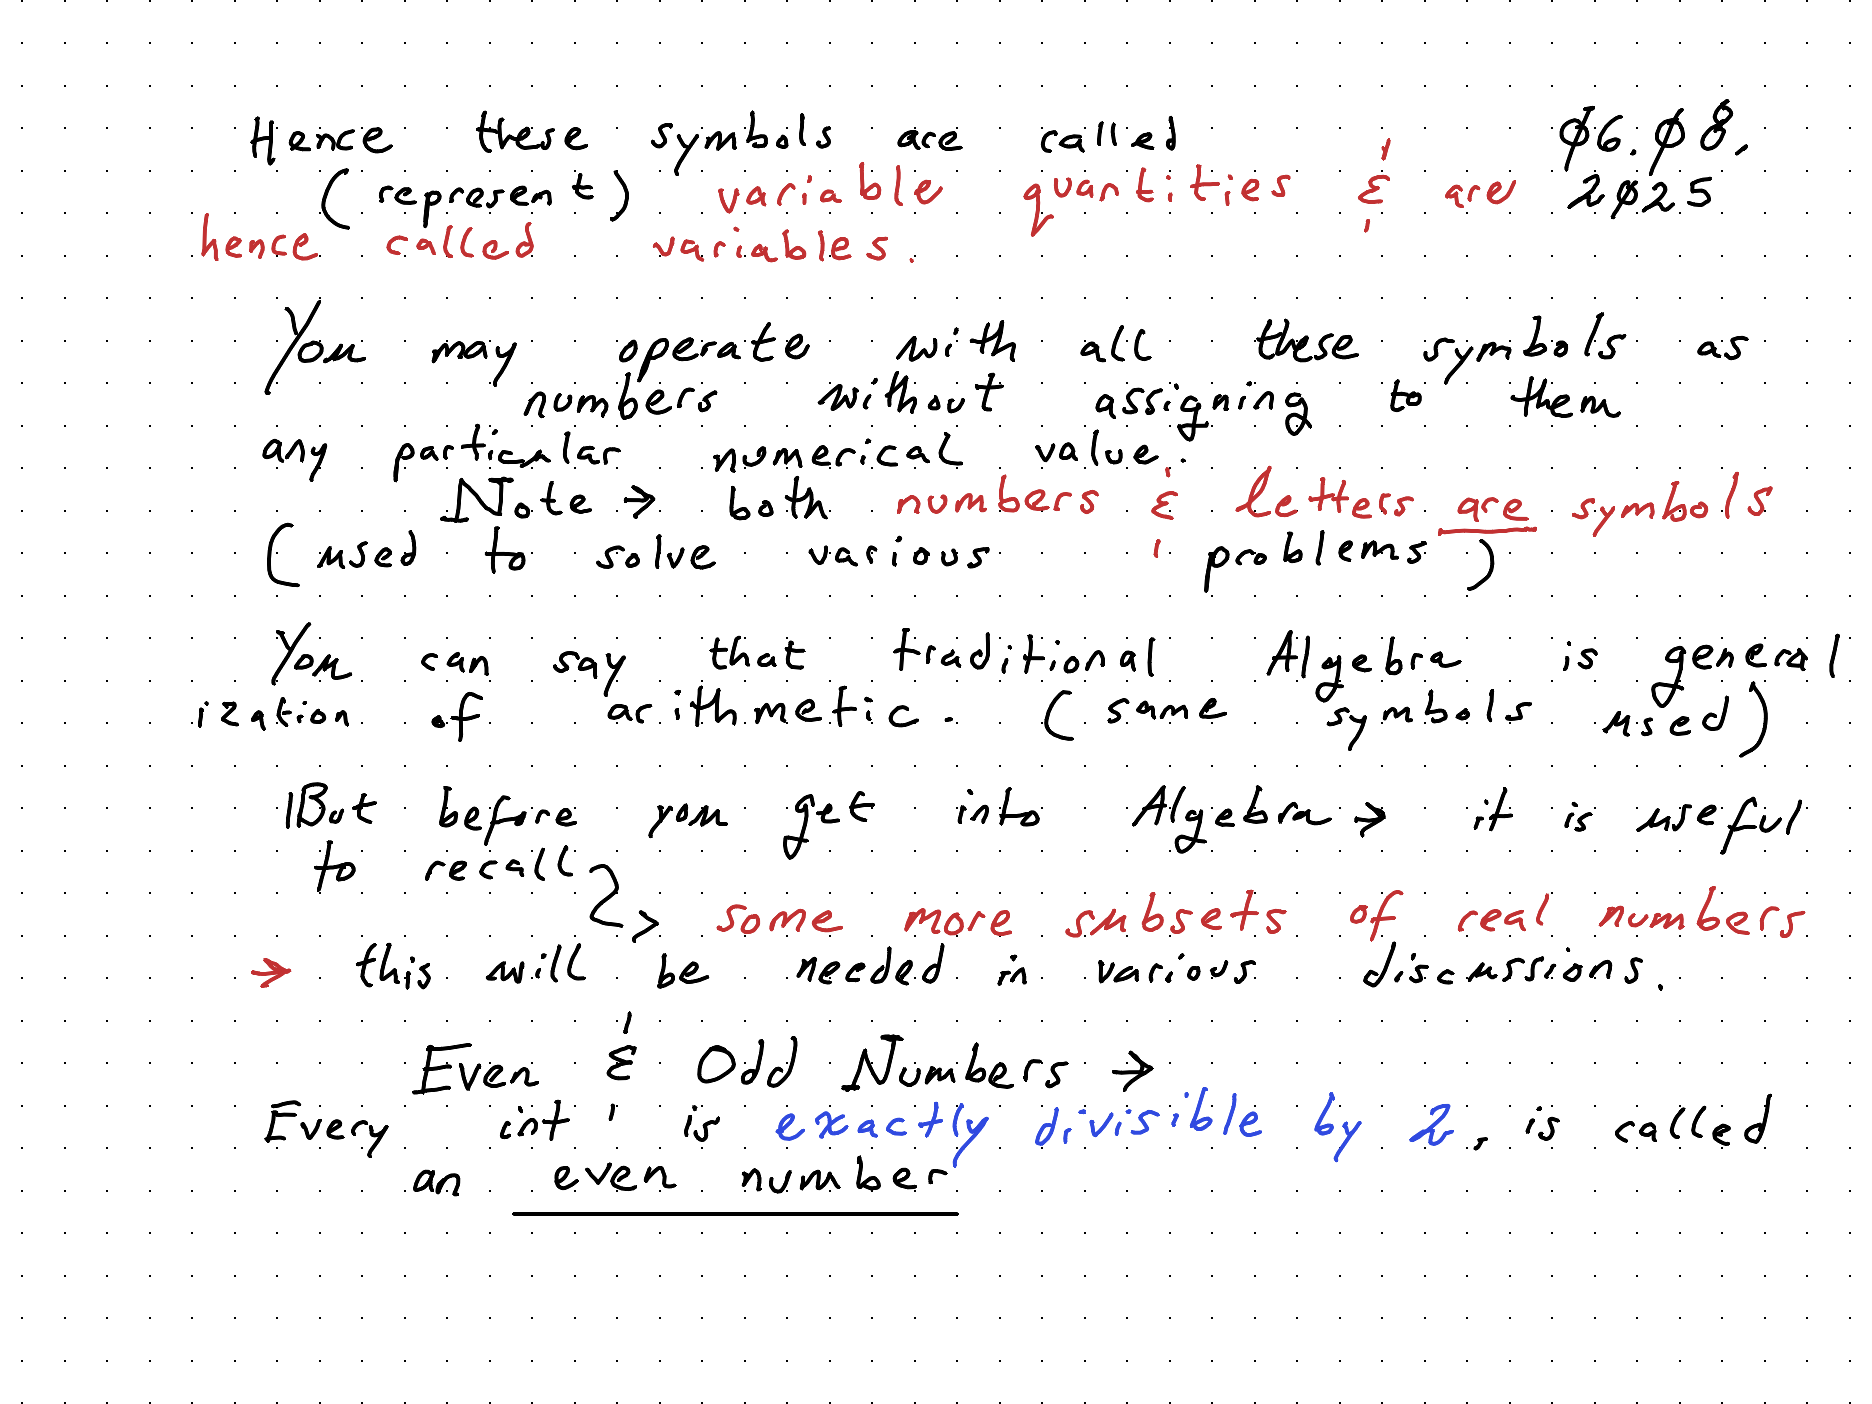 Hence these symbols are called Ø6.Ø8,
(represent) variable quantities & are 2Ø25
hence called variables.
You may operate with all these symbols as
numbers without assigning to them
any particular numerical value.
Note → both numbers & letters are symbols
(used to solve various problems)
You can say that traditional Algebra is general
ization of arithmetic. (same symbols used)
But before you get into Algebra → it is useful
to recall
→ some more subsets of real numbers
→ this will be needed in various discussions.
Even & Odd Numbers →
Every int is exactly divisible by 2, is called
an even number